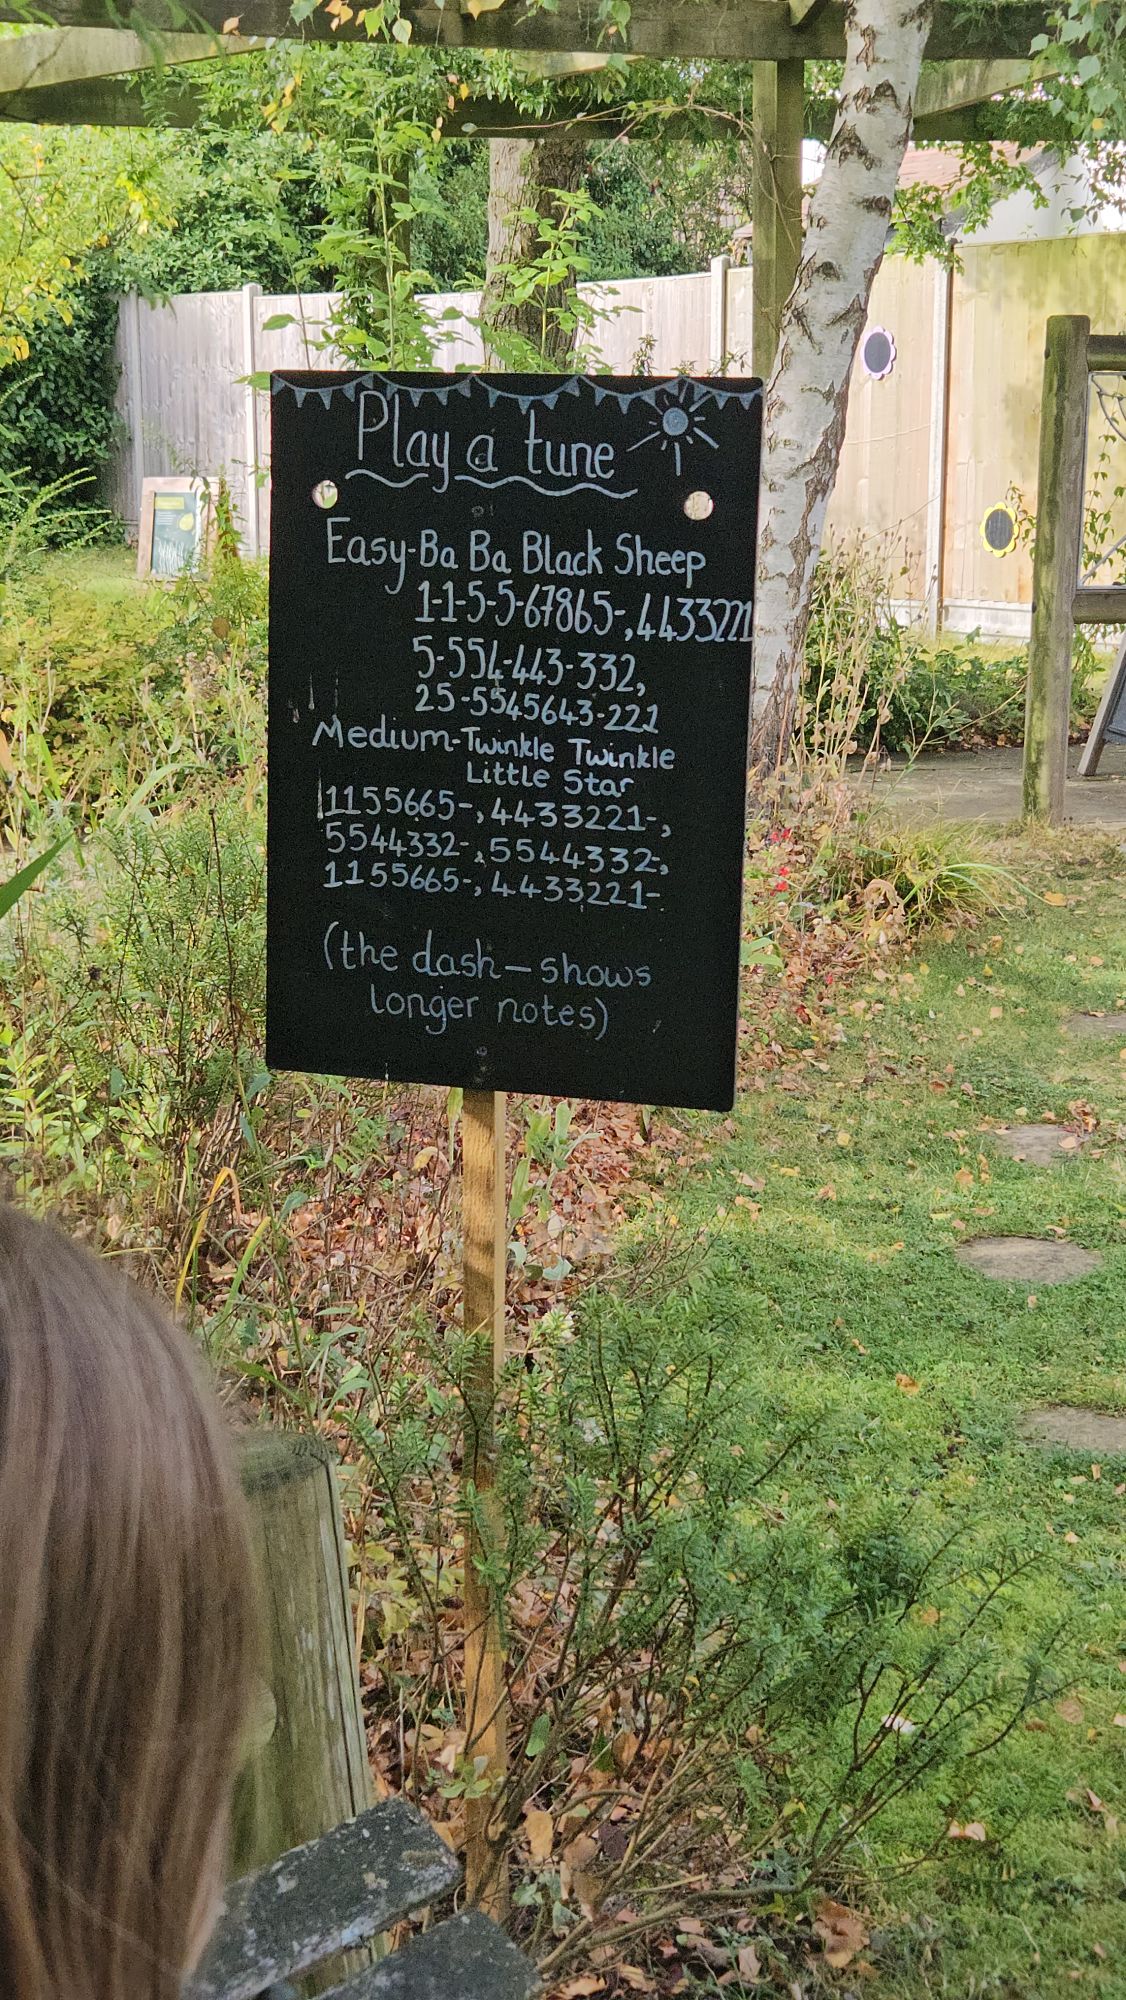 Play a tune
Easy-Ba Ba Black Sheep
1-1-5-5-67865-,4433221
5-554-443-332,
25-5545643-221
Medium-Twinkle Twinkle
Little Star
1155665-,4433221-,
5544332-,5544332-,
1155665-,4433221-.
(the dash — shows
longer notes)